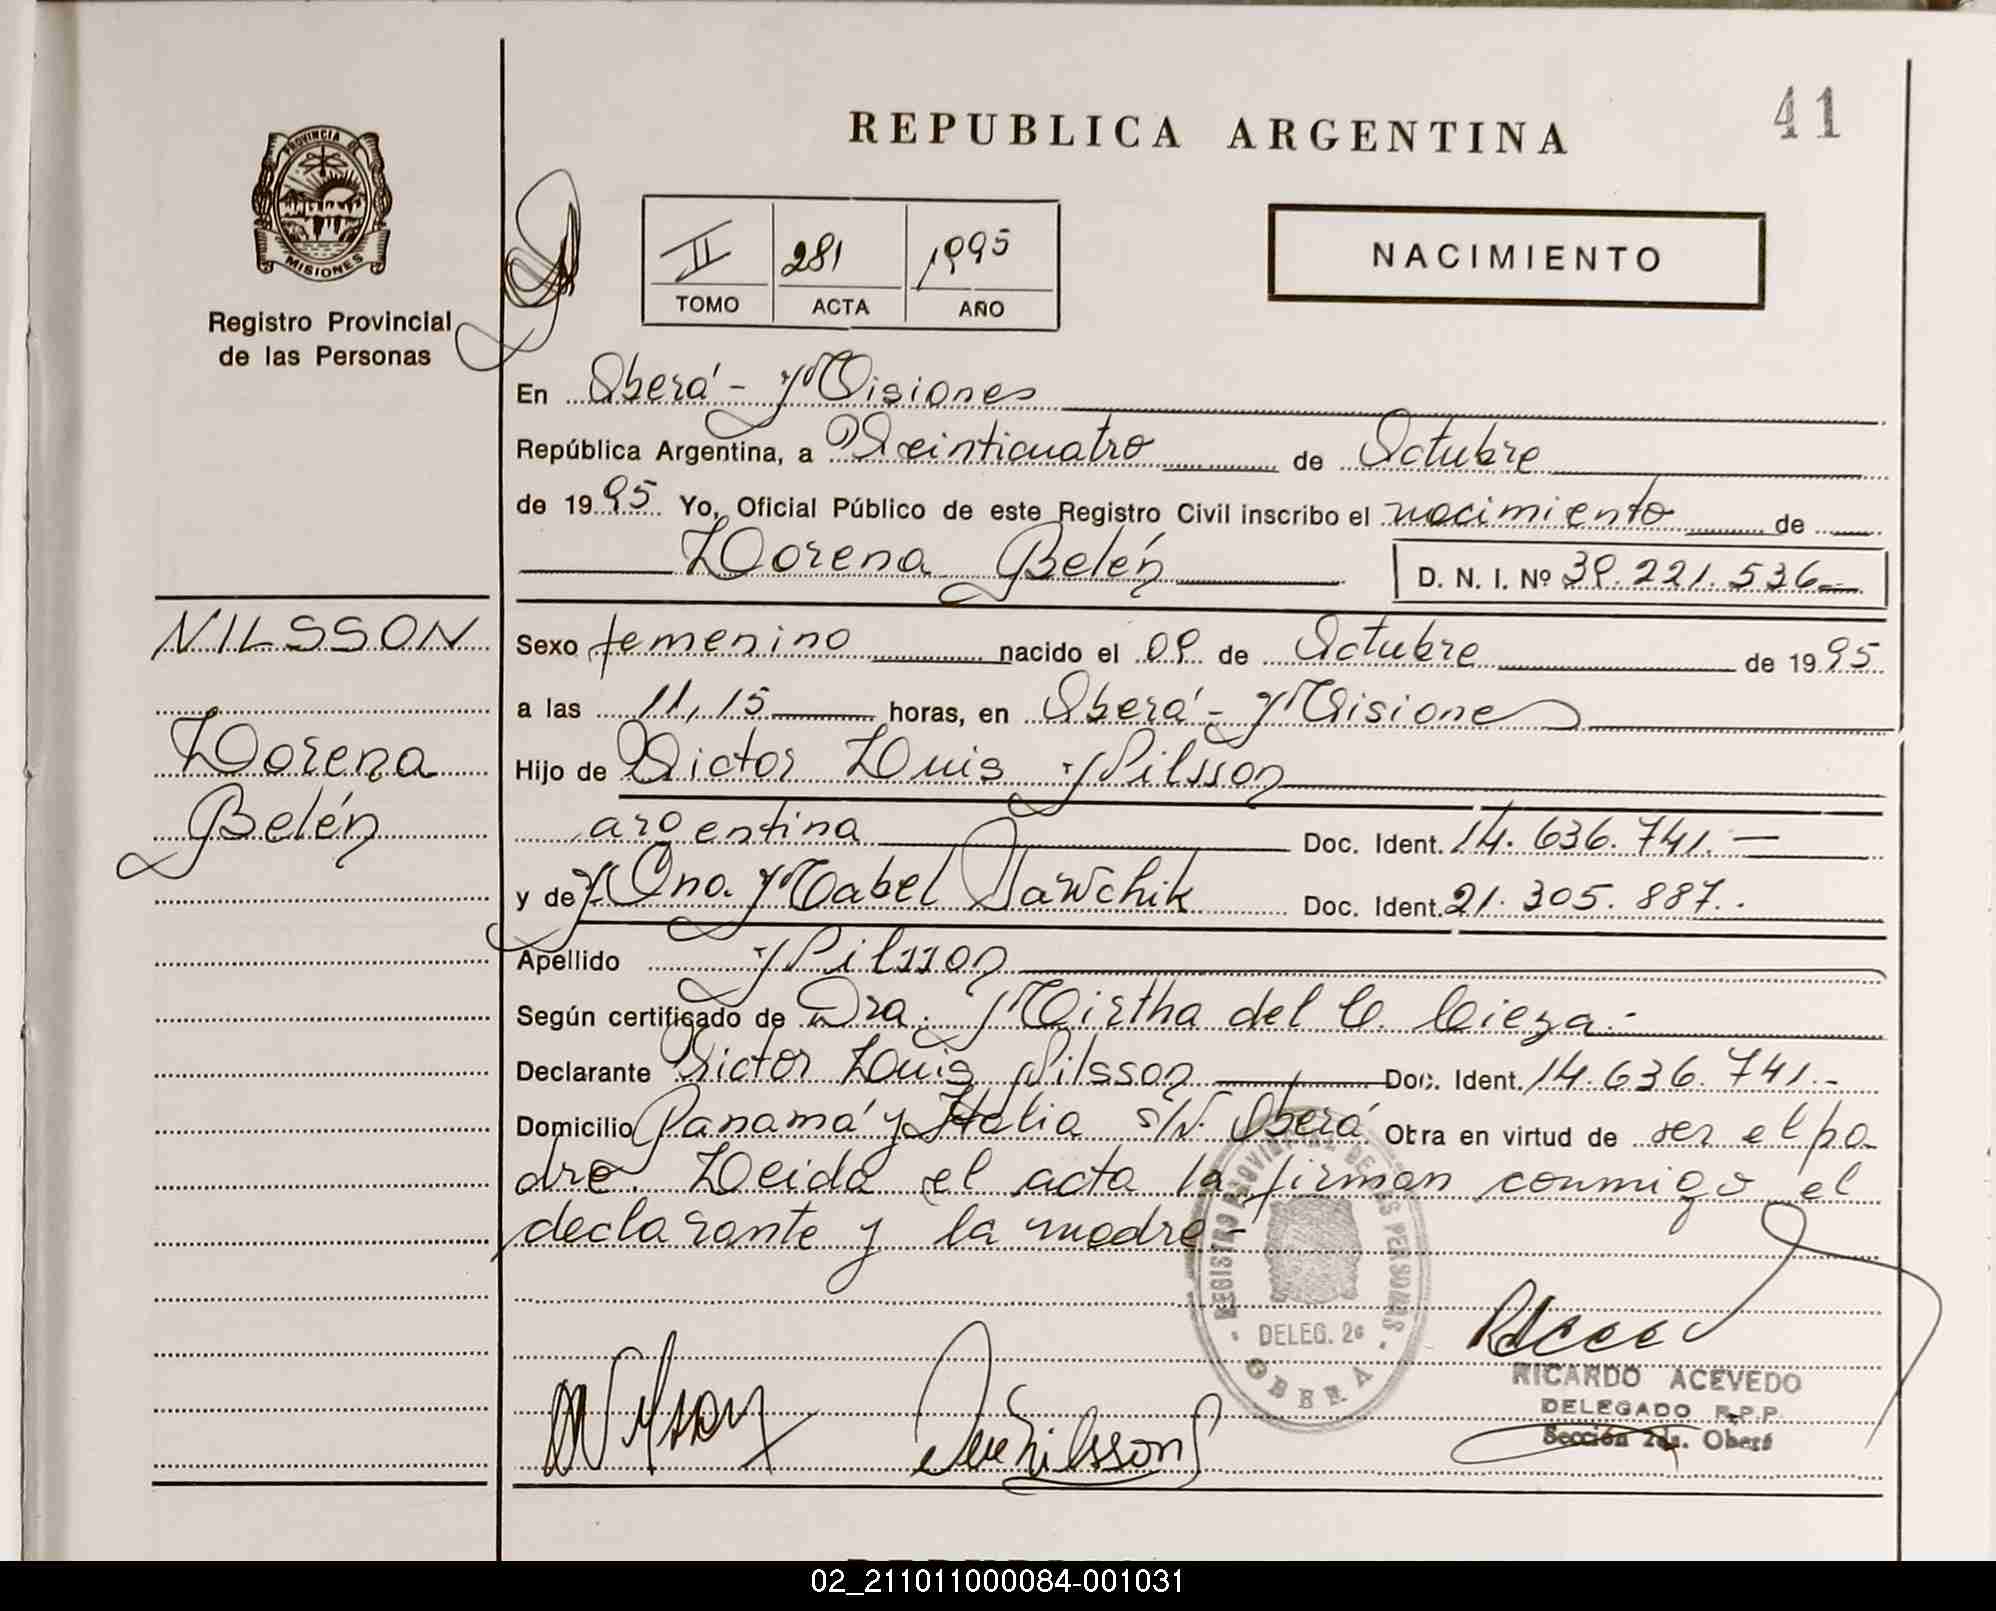 REPUBLICA ARGENTINA
41
PROVINCIA DE
MISIONES
Registro Provincial
de las Personas
II 281 1995
TOMO ACTA AÑO
NACIMIENTO
En Oberá - Misiones
República Argentina, a Veinticuatro de Octubre
de 1995 Yo, Oficial Público de este Registro Civil inscribo el nacimiento de
Lorena Belén D. N. I. Nº 39.221.536
NILSSON
Lorena
Belén
Sexo femenino nacido el 09 de Octubre de 1995
a las 11,15 horas, en Oberá - Misiones
Hijo de Victor Luis Nilsson
argentina Doc. Ident. 14.636.741.-
y de Ana Mabel Sawchik Doc. Ident. 21.305.887.
Apellido Nilsson
Según certificado de Dra. Mirtha del C. Cieza.-
Declarante Victor Luis Nilsson Doc. Ident. 14.636.741.-
Domicilio Panamá y Italia s/N. Oberá Obra en virtud de ser el pa
dre. Leida el acta la firman conmigo el
declarante y la madre-
REGISTRO PROVINCIAL DE LAS PERSONAS
DELEG. 2ª
OBERA
RICARDO ACEVEDO
DELEGADO R.P.P.
Sección 2da. Oberá
02_211011000084-001031